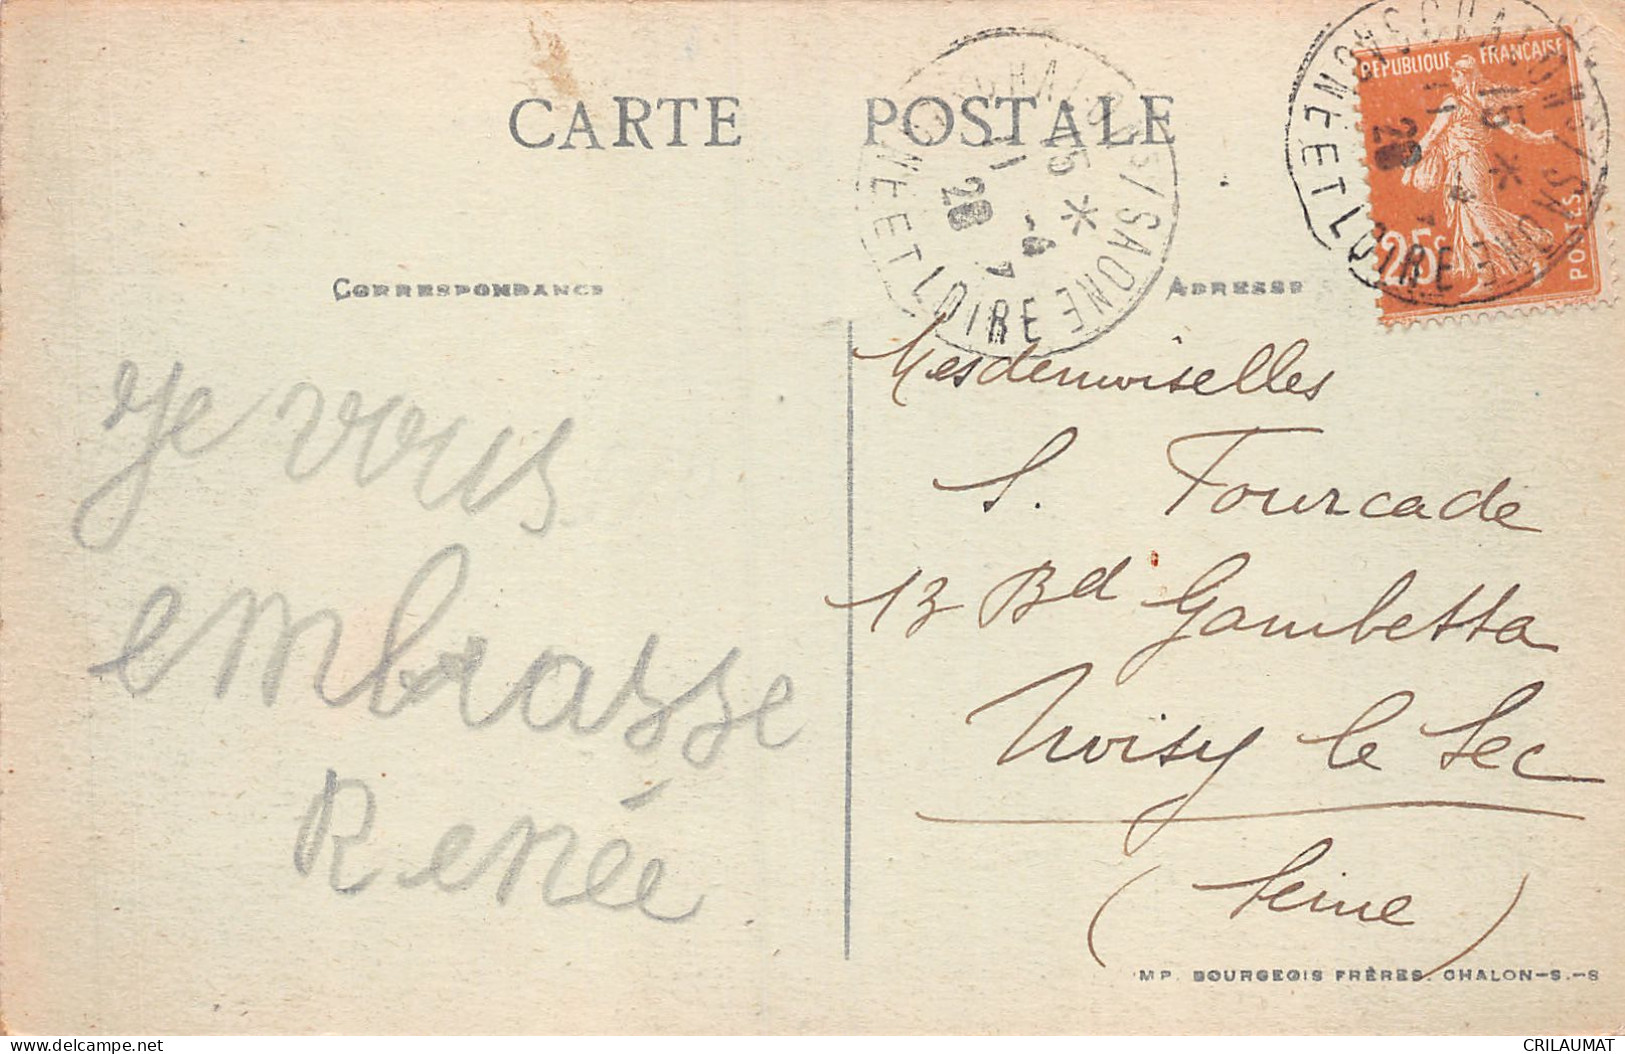 CARTE POSTALE
RÉPUBLIQUE FRANÇAISE
25c
POSTES
CHALON S/ SAONE
SAONE ET LOIRE
15 *
11 -4
28
CORRESPONDANCE
ADRESSE
je vous
embrasse
Renée
Mesdemoiselles
S. Fourcade
13 Bd Gambetta
Noisy le Sec
(Seine)
IMP. BOURGEOIS FRÈRES. CHALON-S.-S
www.delcampe.net
CRILAUMAT